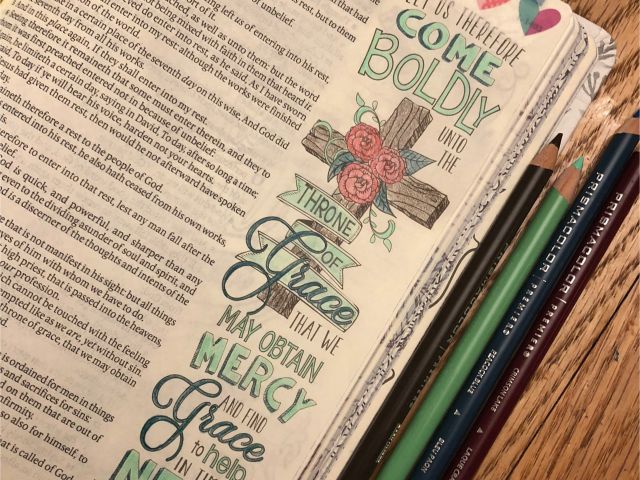 left us of entering into his rest,
of unbelief.
as well as unto them: but the word
not being mixed with faith in them that heard it.
do enter into rest, as he said, As I have sworn
enter into my rest: although the works were finished
in a certain place of the seventh day on this wise, And God did
seventh day from all his works.
in this place again, If they shall enter into my rest.
therefore it remaineth that some must enter therein, and they to
it was first preached entered not in because of unbelief:
he limiteth a certain day, saying in David, To day, after so long a time;
To day if ye will hear his voice, harden not your hearts.
had given them rest, then would he not afterward have spoken
day.
therefore a rest to the people of God.
is entered into his rest, he also hath ceased from his own works,
therefore to enter into that rest, lest any man fall after the
belief.
God is quick, and powerful, and sharper than any
even to the dividing asunder of soul and spirit, and
is a discerner of the thoughts and intents of the
that is not manifest in his sight: but all things
eyes of him with whom we have to do.
high priest, that is passed into the heavens,
our profession.
which cannot be touched with the feeling
tempted like as we are, yet without sin.
throne of grace, that we may obtain
need.
is ordained for men in things
and sacrifices for sins:
and on them that are out of
infirmity.
so also for himself, to
that is called of God
LET US THEREFORE
COME
BOLDLY
UNTO
THE
THRONE
OF
Grace
THAT WE
MAY OBTAIN
MERCY
AND FIND
Grace
to help
IN
PRISMACOLOR PREMIER
PEACOCK BLUE
BLEU PAON
PRISMACOLOR PREMIER
CRIMSON LAKE
LAQUE